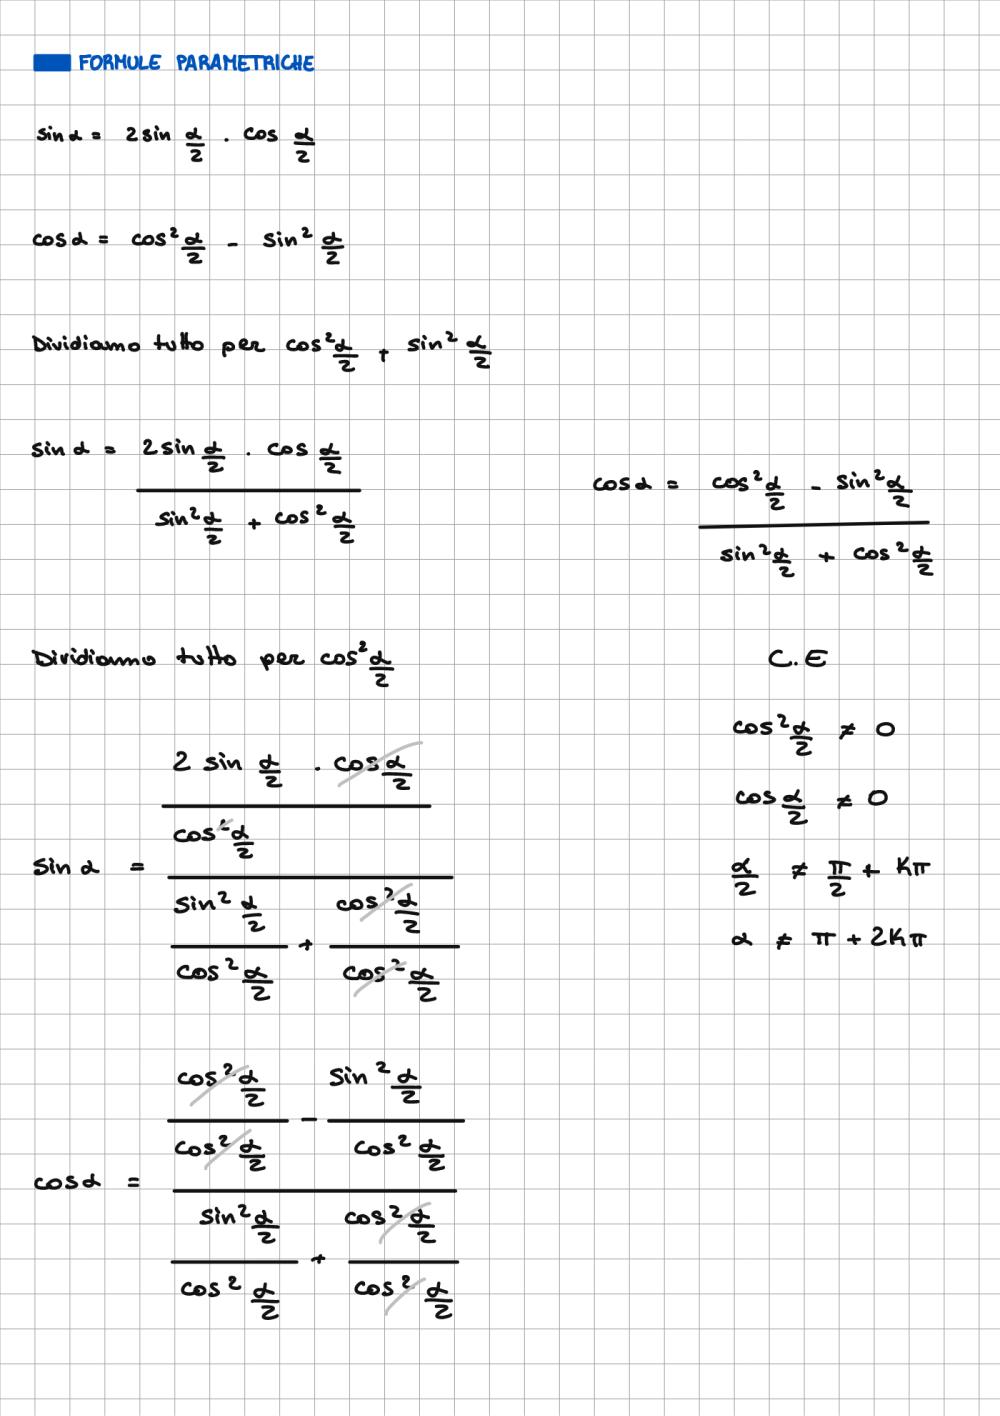 FORMULE PARAMETRICHE
sin α = 2 sin α/2 · cos α/2
cos α = cos² α/2 - sin² α/2
Dividiamo tutto per cos² α/2 + sin² α/2
sin α = (2 sin α/2 · cos α/2) / (sin² α/2 + cos² α/2)
cos α = (cos² α/2 - sin² α/2) / (sin² α/2 + cos² α/2)
Dividiamo tutto per cos² α/2
sin α = ((2 sin α/2 · cos α/2) / (cos² α/2)) / ((sin² α/2) / (cos² α/2) + (cos² α/2) / (cos² α/2))
cos α = ((cos² α/2) / (cos² α/2) - (sin² α/2) / (cos² α/2)) / ((sin² α/2) / (cos² α/2) + (cos² α/2) / (cos² α/2))
C.E
cos² α/2 ≠ 0
cos α/2 ≠ 0
α/2 ≠ π/2 + Kπ
α ≠ π + 2Kπ